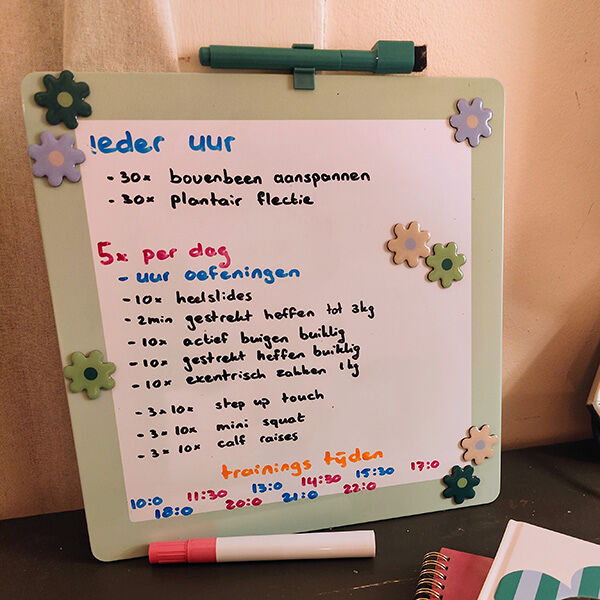 Ieder uur
- 30x bovenbeen aanspannen
- 30x plantair flectie
5x per dag
- uur oefeningen
- 10x heelslides
- 2min gestrekt heffen tot 3kg
- 10x actief buigen buiklig
- 10x gestrekt heffen buiklig
- 10x exentrisch zakken 1kg
- 3x10x step up touch
- 3x10x mini squat
- 3x10x calf raises
trainings tijden
10:0 11:30 13:0 14:30 15:30 17:0
18:0 20:0 21:0 22:0